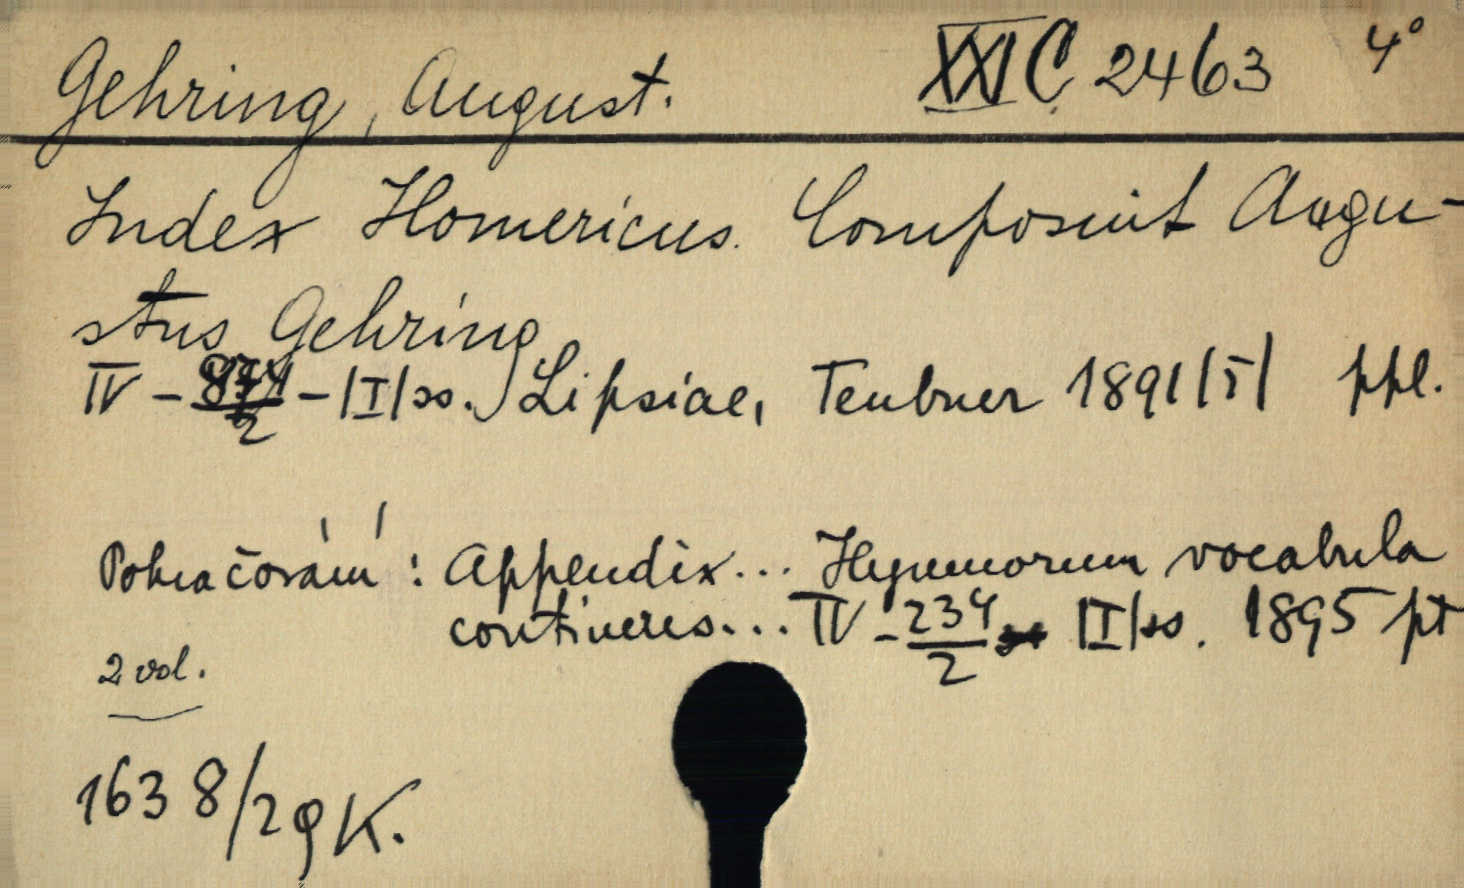 Gehring, August. XXI C 2463 4°
Index Homericus. Composuit Augu-
stus Gehring
IV - 874/2 - |I| ss. Lipsiae, Teubner 1891 |5| ppl.
Pokračování : Appendix... Hymnorum vocabula
contineres... IV - 234/2 |I| ss. 1895 pt
2 vol.
1638/29 K.